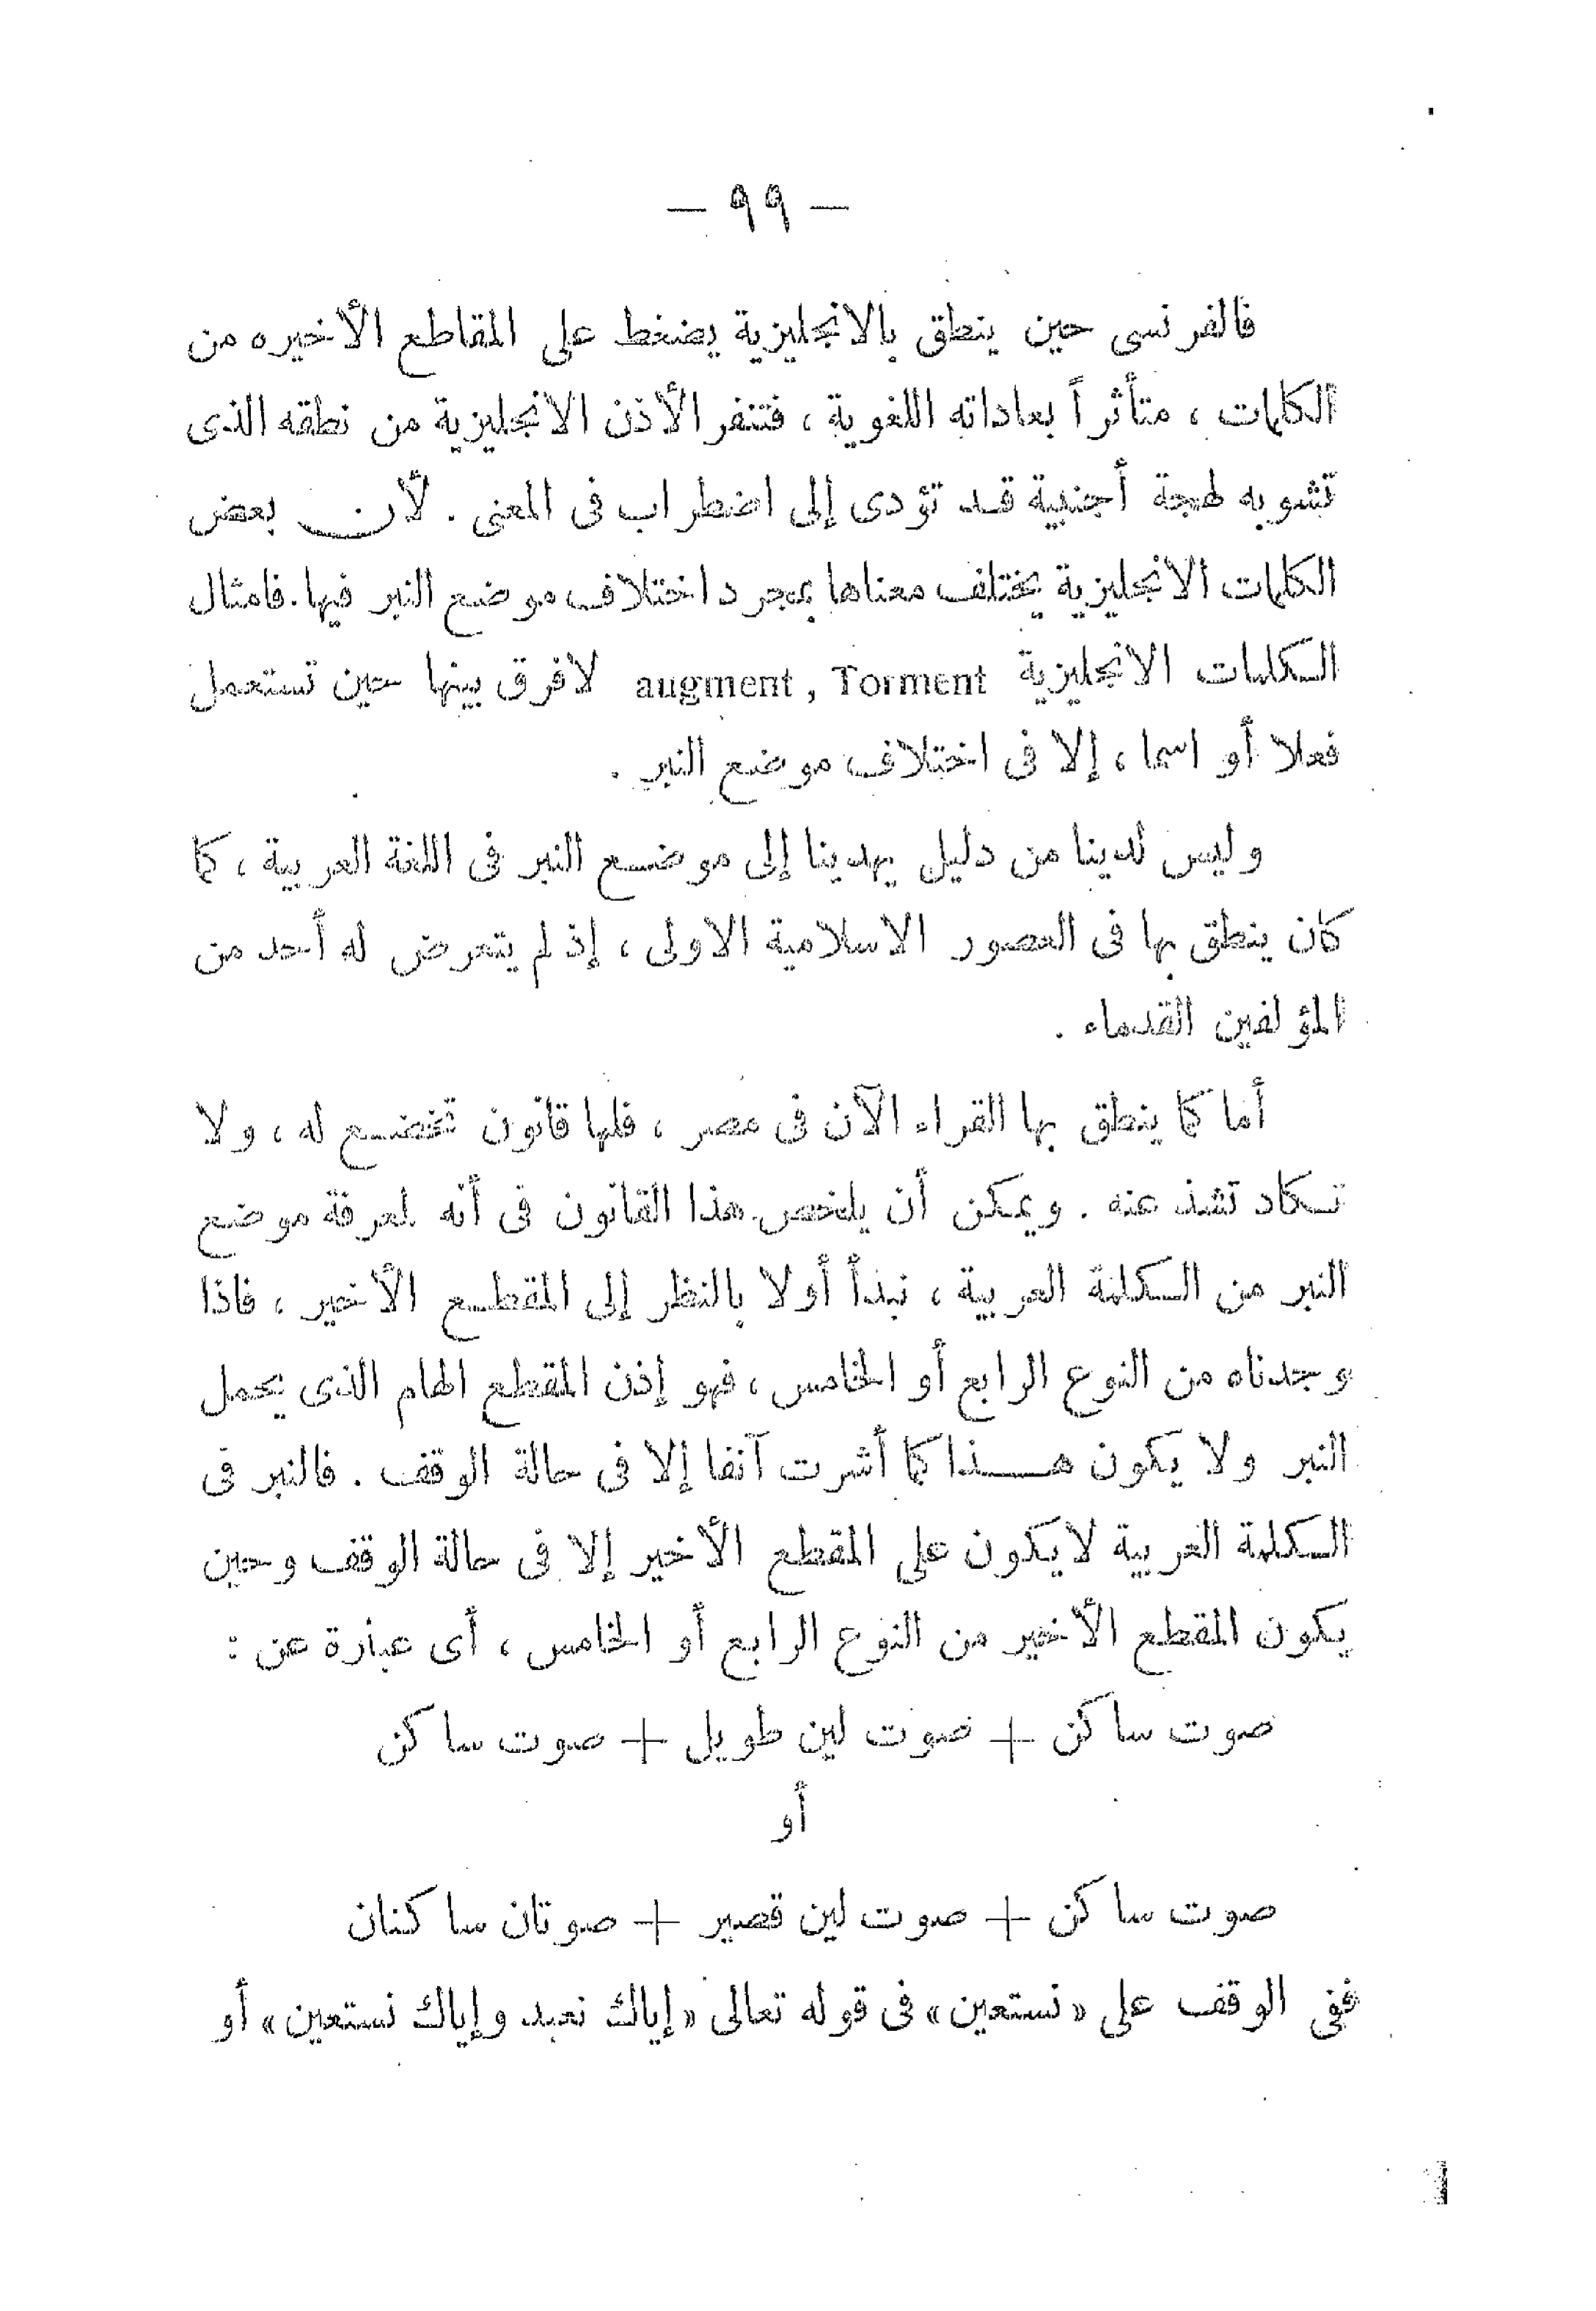 — ٩٩ —
فالفرنسى حين ينطق بالانجليزية يضغط على المقاطع الأخيره من
الكلمات ، متأثراً بعاداته اللغوية ، فتنفر الأذن الانجليزية من نطقه الذى
تشوبه لهجة أجنبية قد تؤدى إلى اضطراب فى المعنى . لأن بعض
الكلمات الانجليزية يختلف معناها بمجرد اختلاف موضع النبر فيها . فامثال
الكلمات الانجليزية augment , Torment لافرق بينها حين تستعمل
فعلا أو اسما ، إلا فى اختلاف موضع النبر .
وليس لدينا من دليل يهدينا إلى موضع النبر فى اللغة العربية ، كما
كان ينطق بها فى العصور الاسلامية الاولى ، إذ لم يتعرض له أحد من
المؤلفين القدماء .
أما كما ينطق بها القراء الآن فى مصر ، فلها قانون تخضع له ، ولا
تكاد تشذ عنه . ويمكن أن يلخص هذا القانون فى أنه لمعرفة موضع
النبر من الكلمة العربية ، نبدأ أولا بالنظر إلى المقطع الأخير ، فاذا
وجدناه من النوع الرابع أو الخامس ، فهو إذن المقطع الهام الذى يحمل
النبر ولا يكون هذا كما أشرت آنفا إلا فى حالة الوقف . فالنبر فى
الكلمة العربية لا يكون على المقطع الأخير إلا فى حالة الوقف وحين
يكون المقطع الأخير من النوع الرابع أو الخامس ، أى عبارة عن :
صوت ساكن + صوت لين طويل + صوت ساكن
أو
صوت ساكن + صوت لين قصير + صوتان ساكنان
ففى الوقف على «نستعين» فى قوله تعالى «إياك نعبد وإياك نستعين» أو